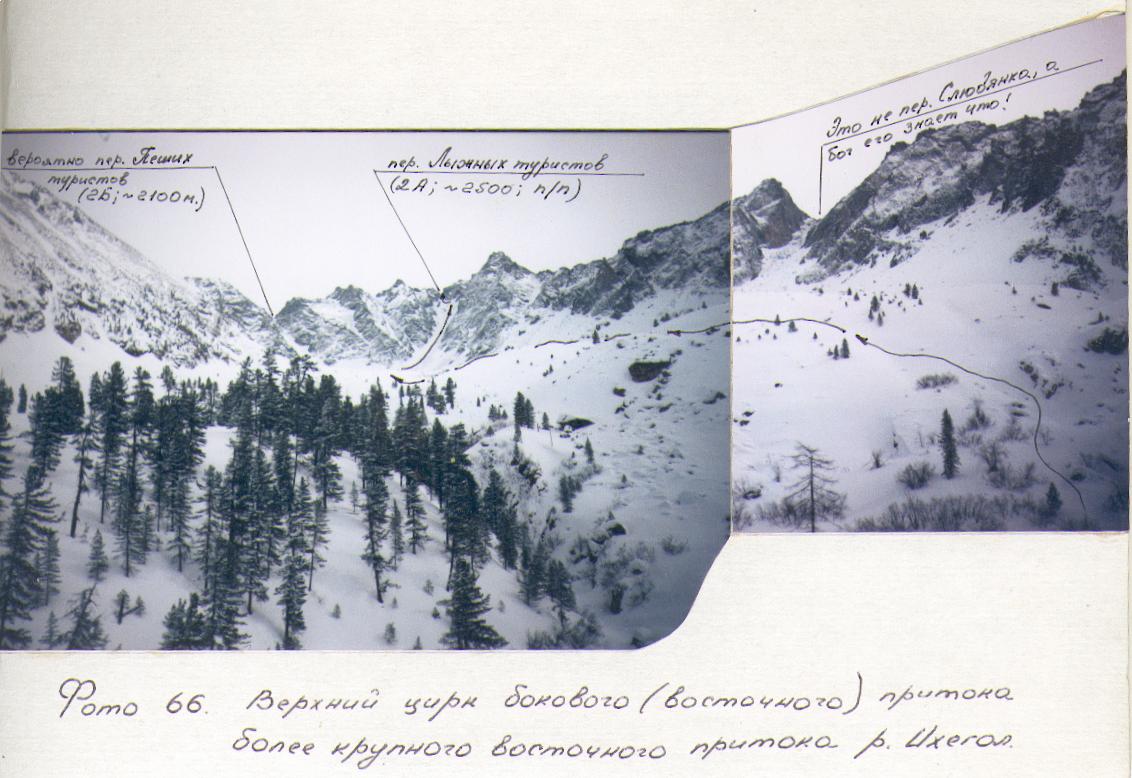 вероятно пер. Пеших
туристов
(2Б; ~2100м.)
пер. Лыжных туристов
(2А; ~2500; п/п)
Это не пер. Слюдянка, а
бог его знает что!
Фото 66. Верхний цирк бокового (восточного) притока
более крупного восточного притока р. Ихегол.